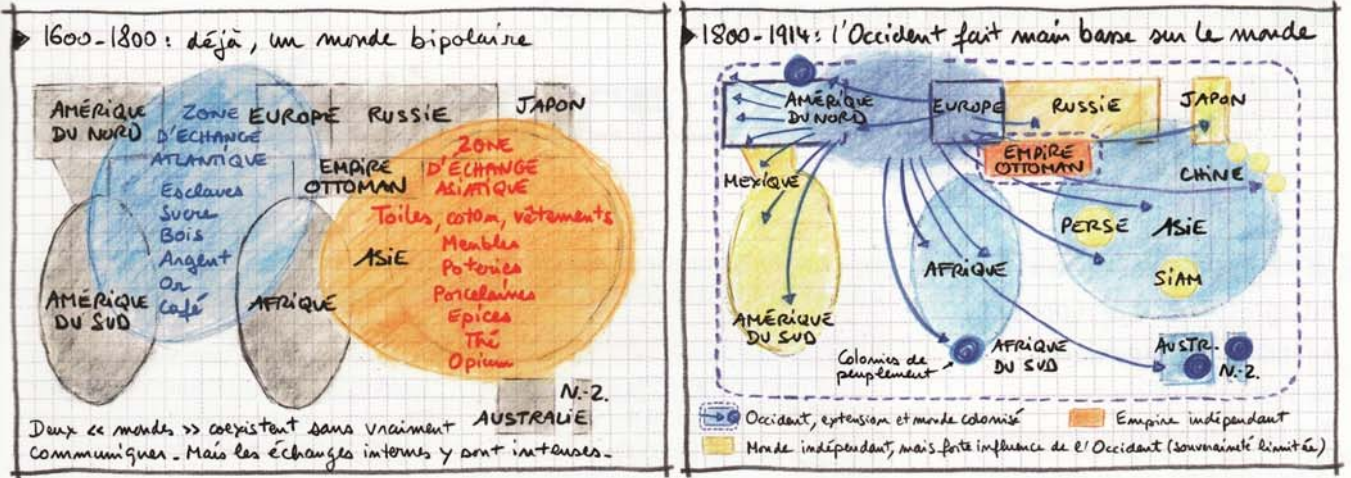 1600-1800 : déjà, un monde bipolaire
AMÉRIQUE
DU NORD
ZONE
D'ÉCHANGE
ATLANTIQUE
Esclaves
Sucre
Bois
Argent
Or
Café
EUROPE
RUSSIE
JAPON
EMPIRE
OTTOMAN
ZONE
D'ÉCHANGE
ASIATIQUE
Toiles, coton, vêtements
Meubles
Poteries
Porcelaines
Epices
Thé
Opium
ASIE
AMÉRIQUE
DU SUD
AFRIQUE
N.-Z.
AUSTRALIE
Deux « mondes » coexistent sans vraiment
communiquer. Mais les échanges internes y sont intenses.
1800-1914 : l'Occident fait main basse sur le monde
AMÉRIQUE
DU NORD
EUROPE
RUSSIE
JAPON
EMPIRE
OTTOMAN
MEXIQUE
CHINE
PERSE
ASIE
SIAM
AFRIQUE
AMÉRIQUE
DU SUD
Colonies de
peuplement
AFRIQUE
DU SUD
AUSTR.
N.-Z.
Occident, extension et monde colonisé
Empire indépendant
Monde indépendant, mais forte influence de l'Occident (souveraineté limitée)